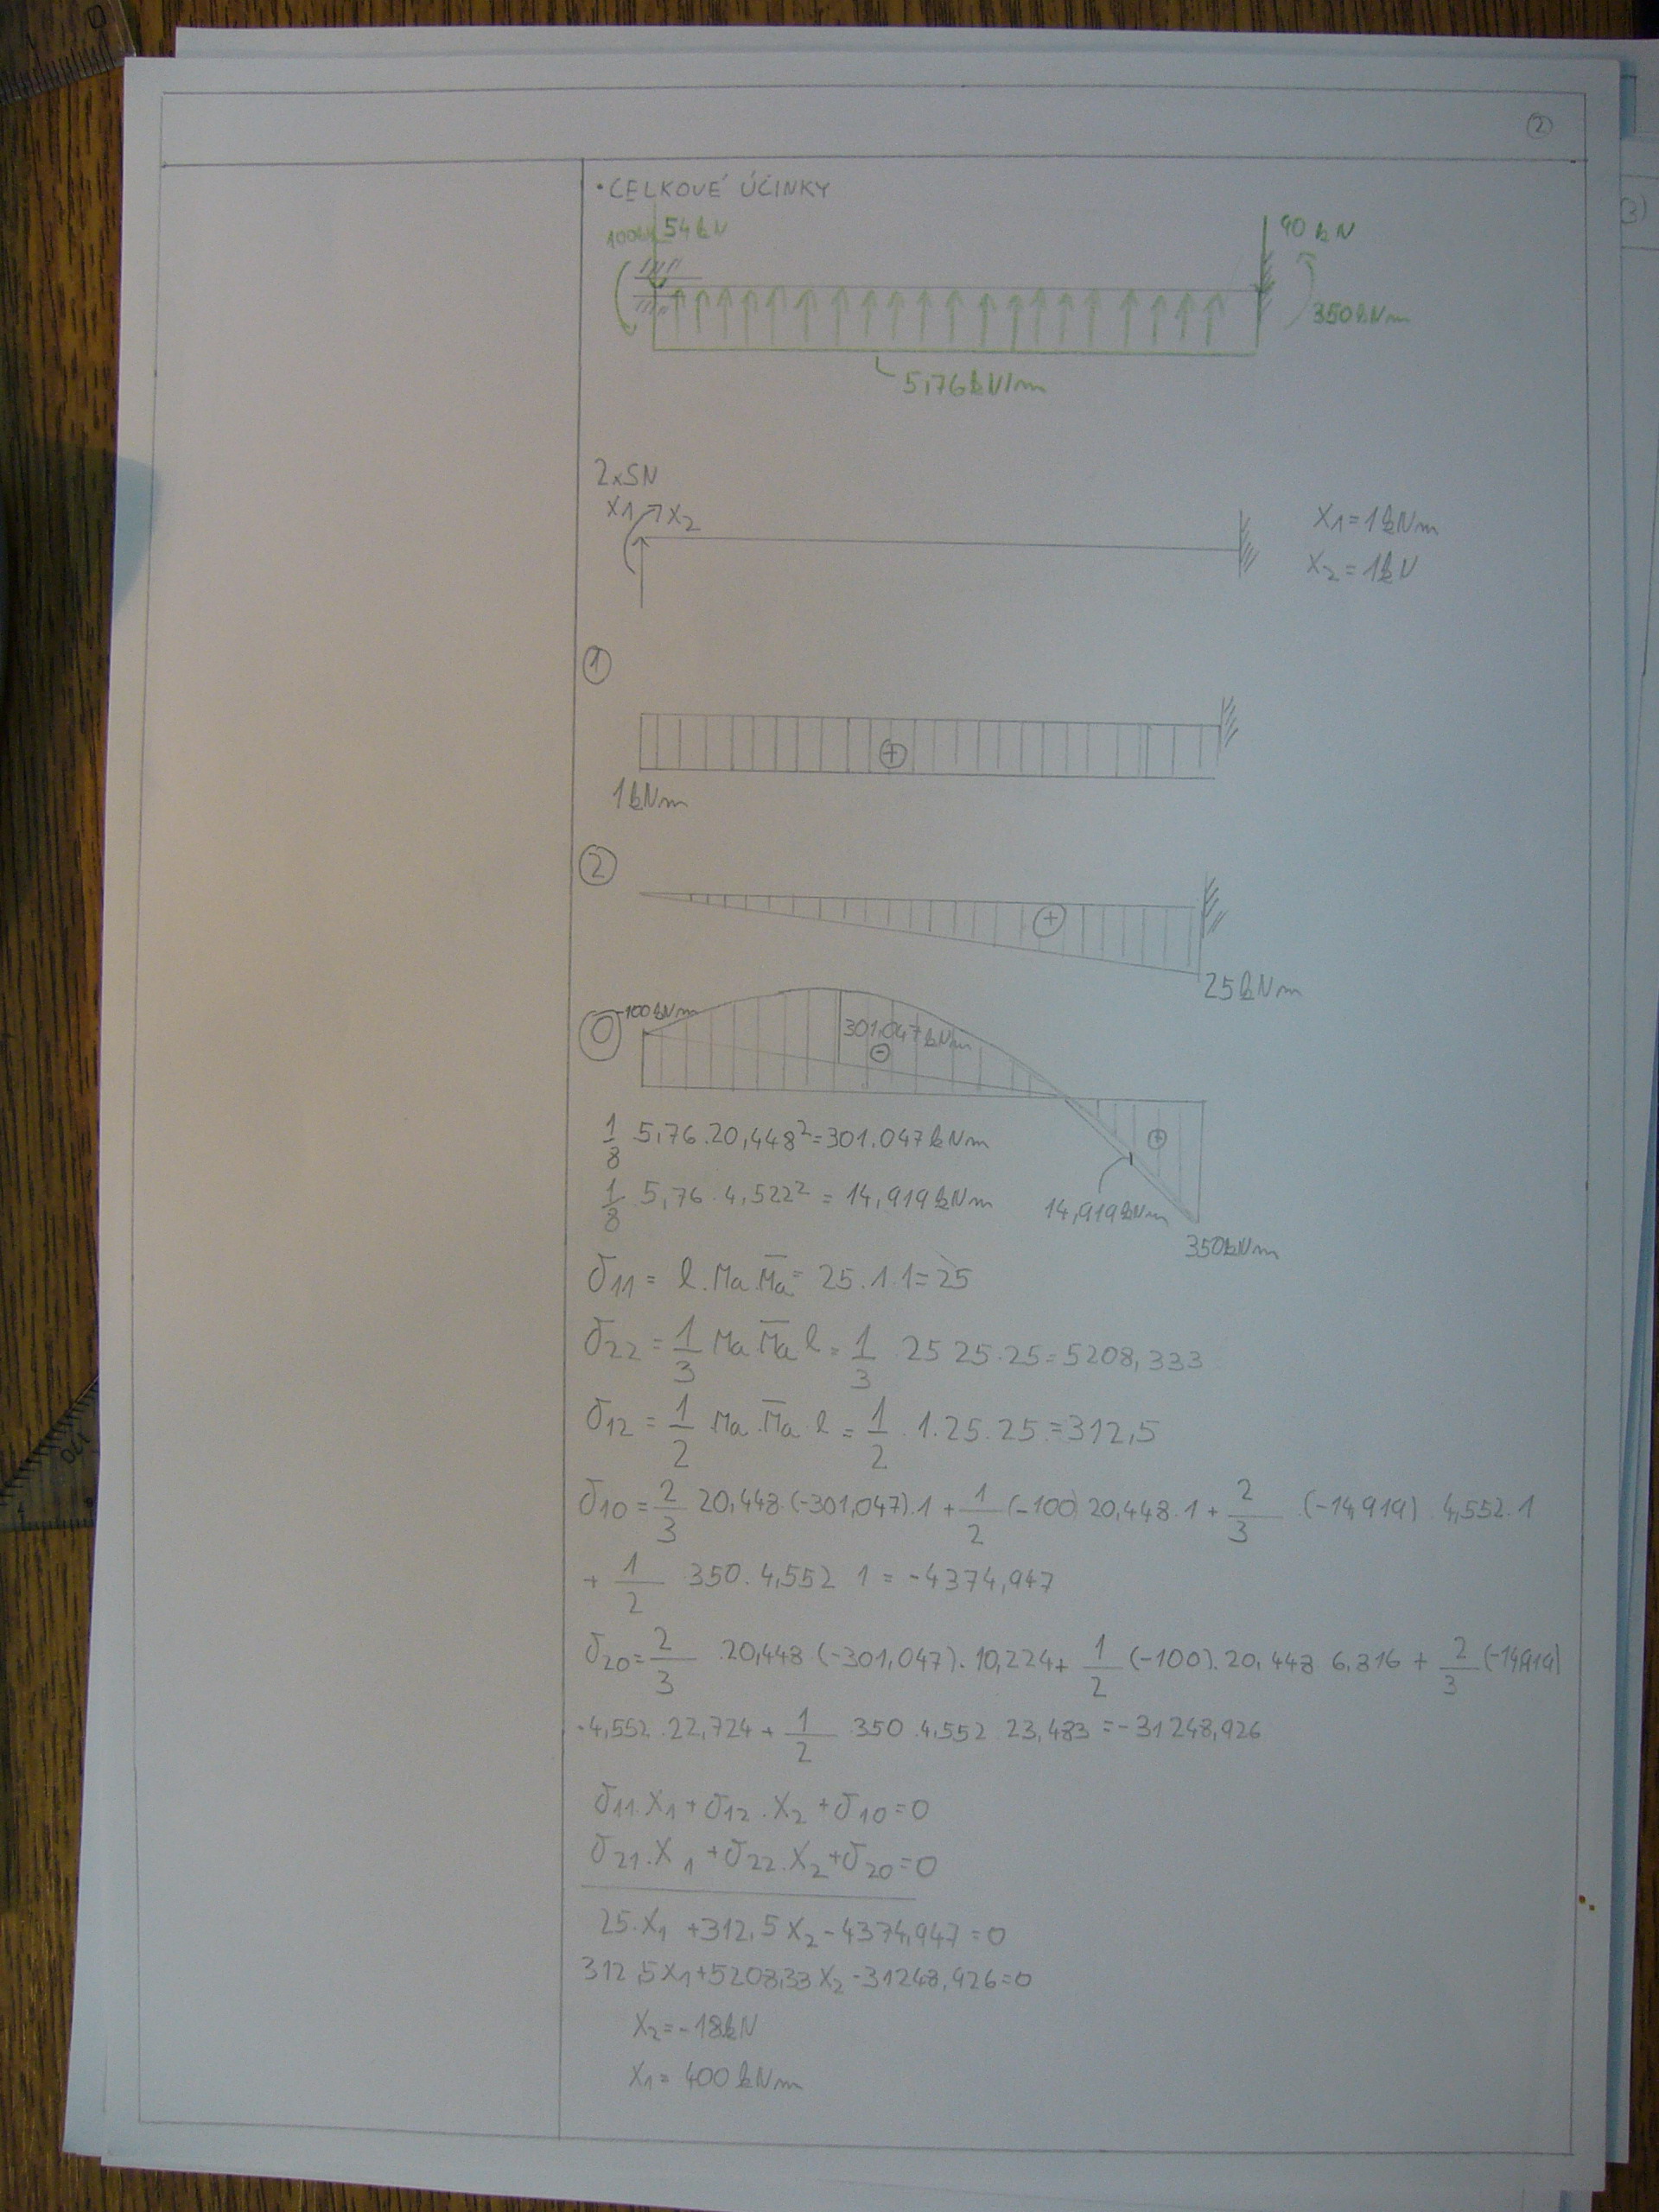 2
• CELKOVÉ ÚČINKY
54 kN
90 kN
350kNm
5,76kN/m
2xSN
X1 X2
X1=1kNm
X2=1kN
1
+
1kNm
2
+
25kNm
0
-100kNm
301,047kNm
-
+
1/8 . 5,76 . 20,448² = 301.047kNm
1/8 . 5,76 . 4,522² = 14,919kNm
14,919kNm
350kNm
δ11 = l . Ma . M̅a = 25 . 1 . 1 = 25
δ22 = 1/3 Ma . M̅a l = 1/3 . 25 25 . 25 = 5208,333
δ12 = 1/2 Ma . M̅a . l = 1/2 . 1 . 25 . 25 = 312,5
δ10 = 2/3 20,448 . (-301,047) . 1 + 1/2 (-100) 20,448 . 1 + 2/3 . (-14,919) . 4,552 . 1
+ 1/2 350 . 4,552 1 = -4374,947
δ20 = 2/3 . 20,448 (-301,047) . 10,224 + 1/2 (-100) . 20,448 6,816 + 2/3 (-14,919)
. 4,552 . 22,724 + 1/2 350 . 4,552 . 23,483 = -31248,926
δ11 . X1 + δ12 . X2 + δ10 = 0
δ21 . X1 + δ22 . X2 + δ20 = 0
25 . X1 + 312,5 X2 - 4374,947 = 0
312,5 X1 + 5208,33 X2 - 31248,926 = 0
X2 = -18kN
X1 = 400kNm